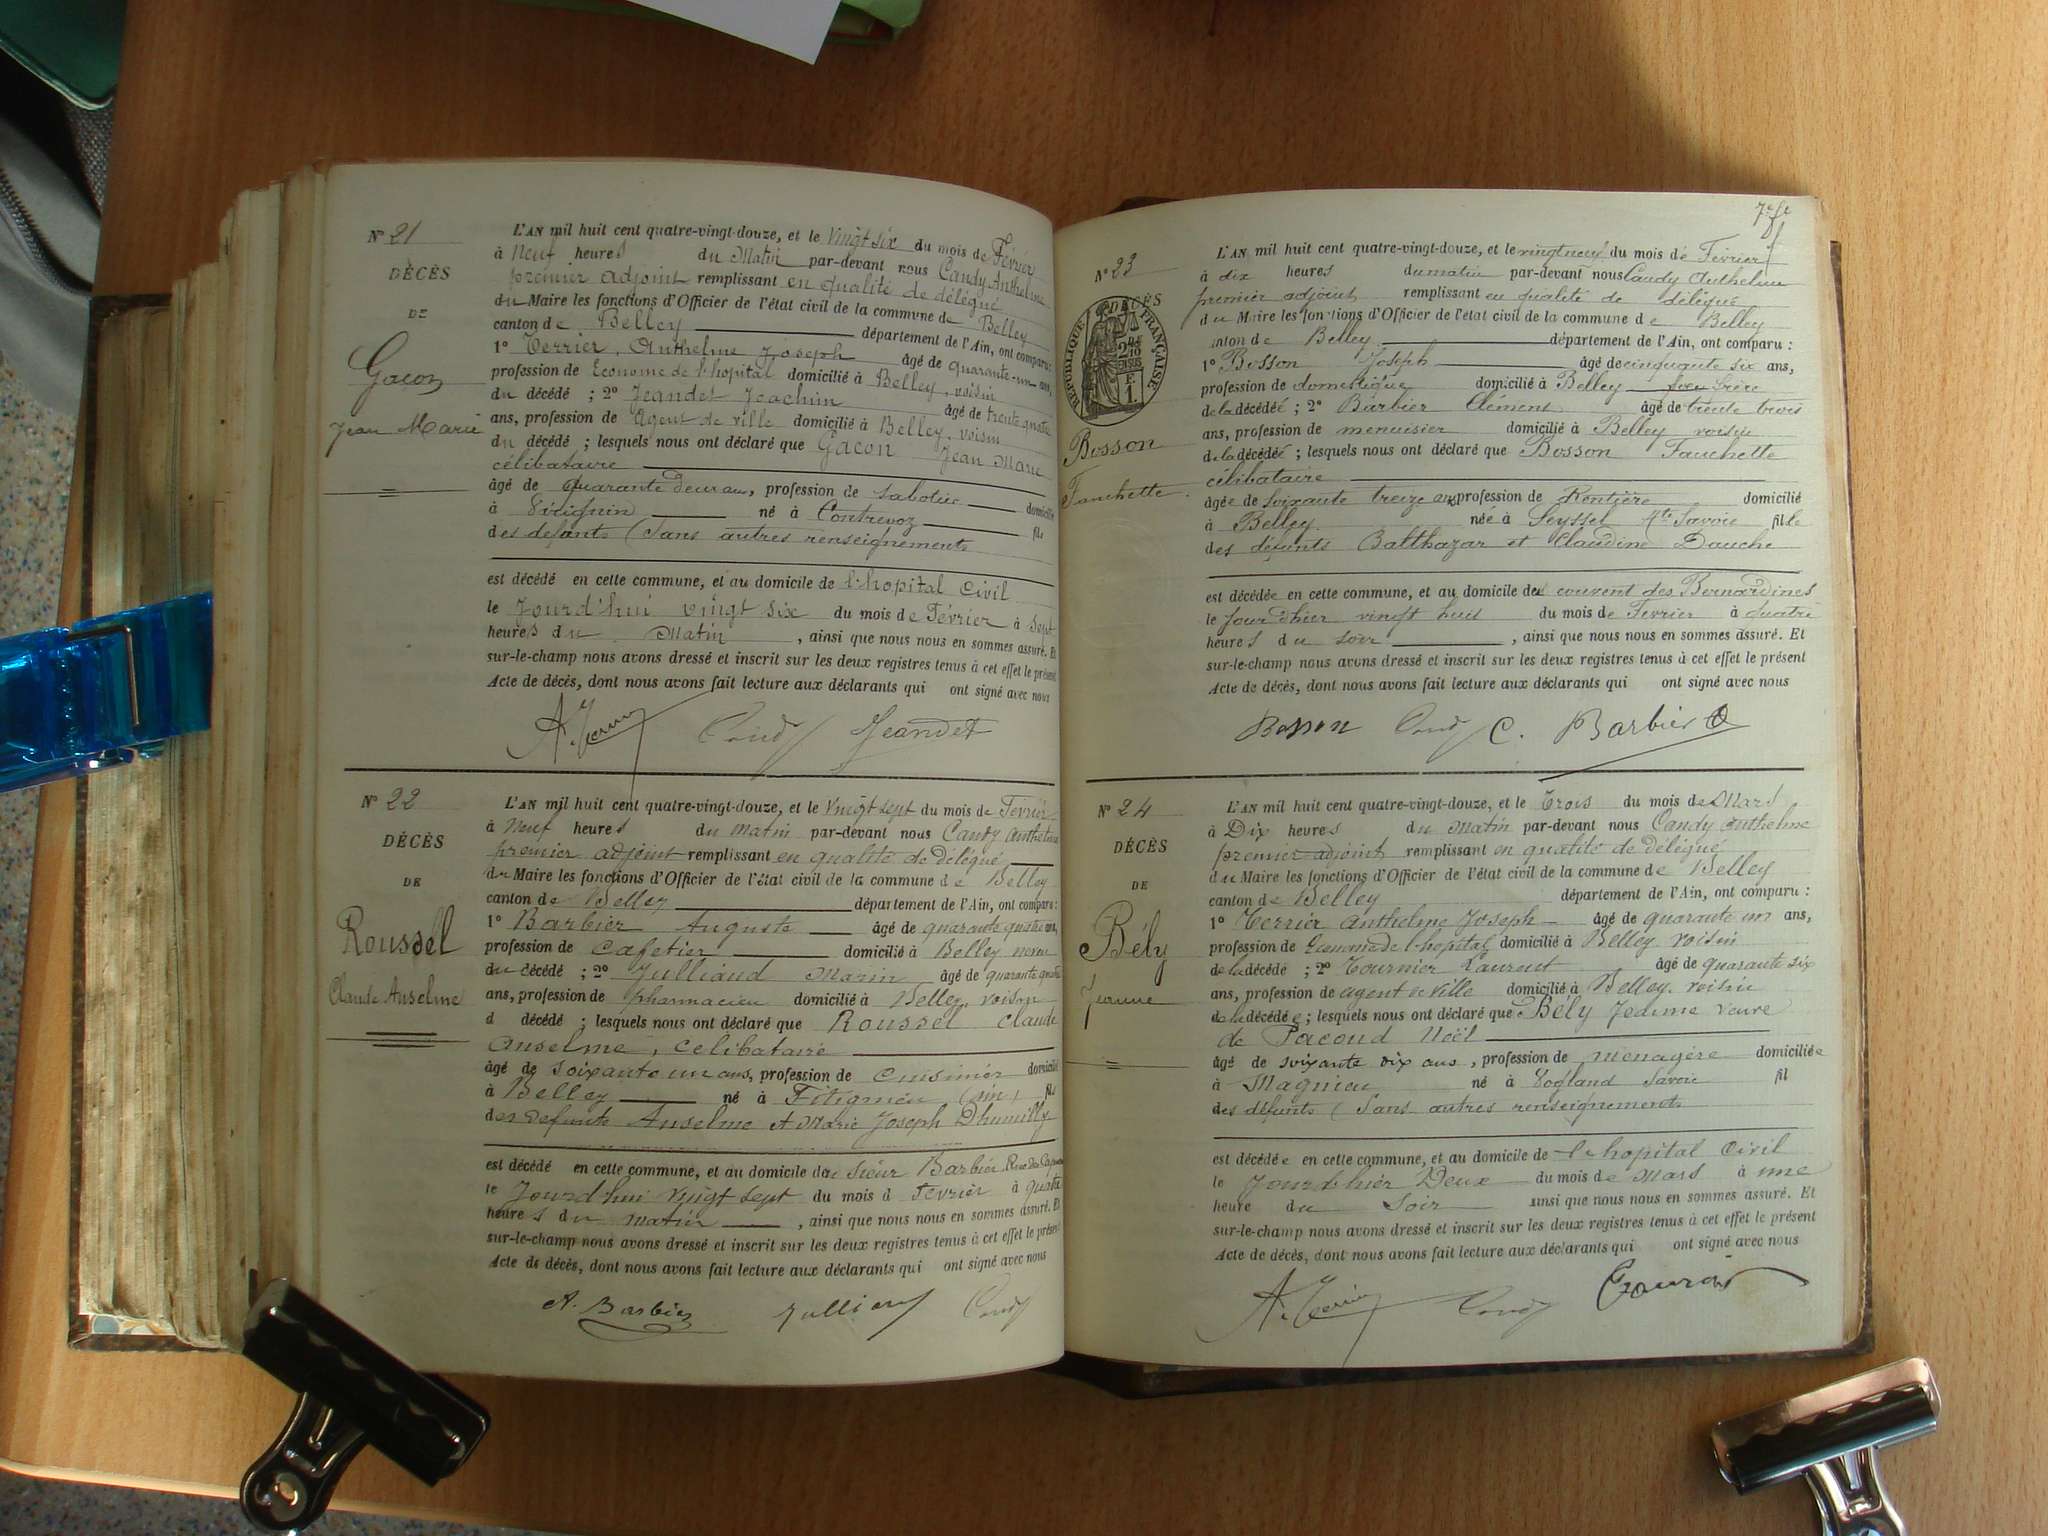 N° 21
DÉCÈS
DE
Gacon
Jean Marie
L'AN mil huit cent quatre-vingt-douze, et le vingt six du mois de Février
à Neuf heures du Matin par-devant nous Candy Anthelme
premier adjoint remplissant en qualité de délégué
du Maire les fonctions d'Officier de l'état civil de la commune de Belley
canton de Belley département de l'Ain, ont comparu :
1° Terrier, Anthelme Joseph âgé de quarante-un ans,
profession de Econome de l'hopital domicilié à Belley, voisin
du décédé ; 2° Jeandet Joachim âgé de trente quatre
ans, profession de Agent de ville domicilié à Belley, voisin
du décédé ; lesquels nous ont déclaré que Gacon Jean Marie
célibataire
âgé de quarante deux ans, profession de sabotier domicilié
à né à Contrevoz fils
des défunts (Sans autres renseignements
est décédé en cette commune, et au domicile de l'hopital Civil
le Jourd'hui vingt six du mois de Février à sept
heures du Matin , ainsi que nous nous en sommes assuré. Et
sur-le-champ nous avons dressé et inscrit sur les deux registres tenus à cet effet le présent
Acte de décès, dont nous avons fait lecture aux déclarants qui ont signé avec nous
A. Terrier Candy Jeandet
N° 22
DÉCÈS
DE
Roussel
Claude Anselme
L'AN mil huit cent quatre-vingt-douze, et le vingt sept du mois de Février
à Neuf heures du Matin par-devant nous Candy Anthelme
premier adjoint remplissant en qualité de délégué
du Maire les fonctions d'Officier de l'état civil de la commune de Belley
canton de Belley département de l'Ain, ont comparu :
1° Barbier Auguste âgé de quarante quatre ans,
profession de Cafetier domicilié à Belley
du décédé ; 2° Julliand Marin âgé de quarante quatre
ans, profession de pharmacien domicilié à Belley, voisin
d décédé ; lesquels nous ont déclaré que Roussel Claude
Anselme, celibataire
âgé de soixante un ans, profession de cuisinier domicilié
à Belley né à Fitignieu (Ain) fils
des defunts Anselme et Marie Joseph Dhumilly
est décédé en cette commune, et au domicile du sieur Barbier, Rue des
le Jourd'hui vingt sept du mois d Février à quatre
heures du matin , ainsi que nous nous en sommes assuré. Et
sur-le-champ nous avons dressé et inscrit sur les deux registres tenus à cet effet le présent
Acte de décès, dont nous avons fait lecture aux déclarants qui ont signé avec nous
A. Barbier Julliand Candy
7e ft
N° 23
DÉCÈS
RÉPUBLIQUE FRANÇAISE
Bosson
Fanchette
L'AN mil huit cent quatre-vingt-douze, et le vingt neuf du mois de Février
à dix heures du matin par-devant nous Candy Anthelme
premier adjoint remplissant en qualité de délégué
du Maire les fonctions d'Officier de l'état civil de la commune de Belley
canton de Belley département de l'Ain, ont comparu :
1° Bosson Joseph âgé de cinquante six ans,
profession de domestique domicilié à Belley frère
de la décédée ; 2° Barbier Clément âgé de trente trois
ans, profession de menuisier domicilié à Belley voisin
de la décédée ; lesquels nous ont déclaré que Bosson Fanchette
célibataire
âgée de soixante treize ans profession de Rentière domicilié
à Belley née à Seyssel Hte Savoie fille
des défunts Balthazar et Claudine Dauche
est décédée en cette commune, et au domicile des couvent des Bernardines
le Jour d'hier vingt huit du mois de Février à quatre
heures du soir , ainsi que nous nous en sommes assuré. Et
sur-le-champ nous avons dressé et inscrit sur les deux registres tenus à cet effet le présent
Acte de décès, dont nous avons fait lecture aux déclarants qui ont signé avec nous
Bosson Candy C. Barbier
N° 24
DÉCÈS
DE
Bély
Jeanne
L'AN mil huit cent quatre-vingt-douze, et le Trois du mois de Mars
à Dix heures du Matin par-devant nous Candy Anthelme
premier adjoint remplissant en qualité de délégué
du Maire les fonctions d'Officier de l'état civil de la commune de Belley
canton de Belley département de l'Ain, ont comparu :
1° Terrier Anthelme Joseph âgé de quarante un ans,
profession de Econome de l'hopital domicilié à Belley voisin
de la décédé ; 2° Tournier Laurent âgé de quarante six
ans, profession de agent de ville domicilié à Belley, voisin
de la décédée ; lesquels nous ont déclaré que Bély Jeanne veuve
de Pacoud Noël
âgé de soixante dix ans, profession de ménagère domiciliée
à Magnieu né à Savoie fil
des défunts (Sans autres renseignements
est décédée en cette commune, et au domicile de l'hopital Civil
le Jour d'hier Deux du mois de Mars à une
heure du Soir ainsi que nous nous en sommes assuré. Et
sur-le-champ nous avons dressé et inscrit sur les deux registres tenus à cet effet le présent
Acte de décès, dont nous avons fait lecture aux déclarants qui ont signé avec nous
A. Terrier Candy